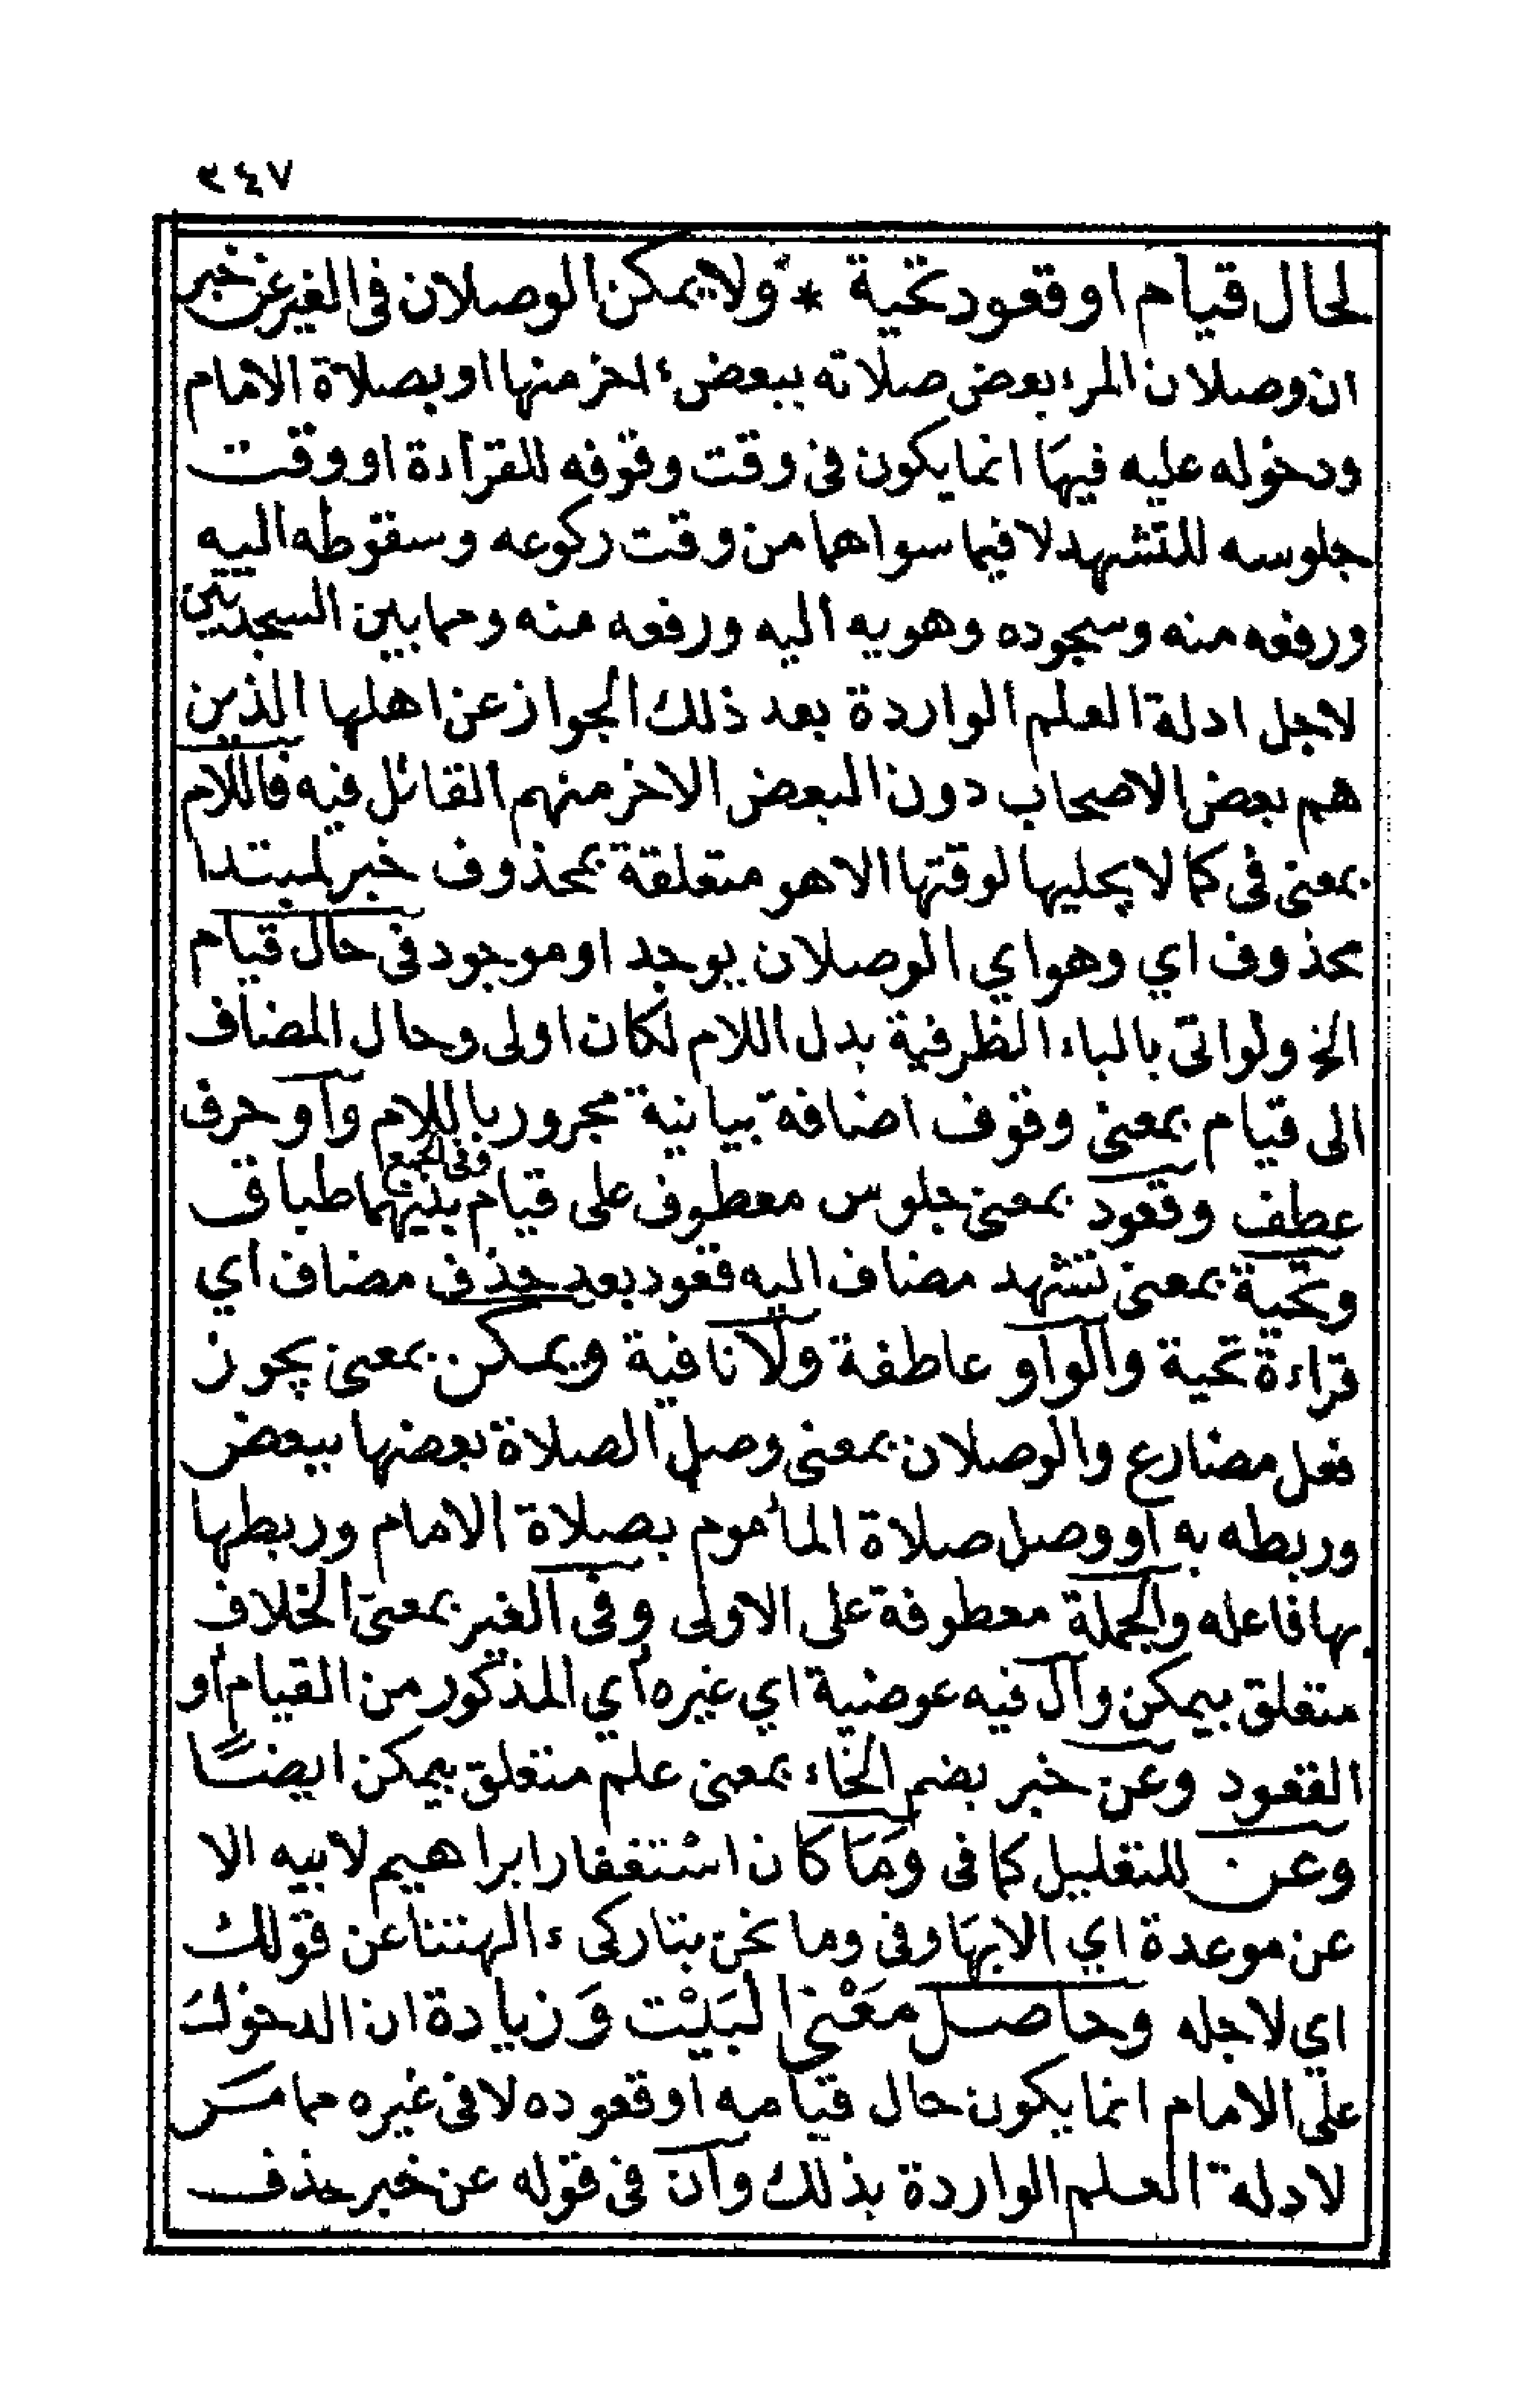 ٢٤٧
لحال قيام او قعود تحية * ولا يمكن الوصلان فى الغير عن خبر
ان وصلان المرء بعض صلاته ببعض ءاخر منها او بصلاة الامام
ودخوله عليه فيها انما يكون فى وقت وقوفه للقراءة او وقت
جلوسه للتشهد لا فيما سواهما من وقت ركوعه وسقوطه اليه
ورفعه منه وسجوده وهويه اليه ورفعه منه وما بين السجدتين
لاجل ادلة العلم الواردة بعد ذلك الجواز عن اهلها الذين
هم بعض الاصحاب دون البعض الاخر منهم القائل فيه فاللام
بمعنى فى كما لا يجليها لوقتها الا هو متعلقة بمحذوف خبر لمبتدا
محذوف اي وهو اي الوصلان يوجد او موجود فى حال قيام
الخ ولو اتى بالباء الظرفية بدل اللام لكان اولى وحال المضاف
الى قيام بمعنى وقوف اضافة بيانية مجرور باللام واو حرف
عطف وقعود بمعنى جلوس معطوف على قيام وفى الجمع بينهما طباق
وتحية بمعنى تشهد مضاف اليه قعود بعد حذف مضاف اي
قراءة تحية والواو عاطفة ولا نافية ويمكن بمعنى يجوز
فعل مضارع والوصلان بمعنى وصل الصلاة بعضها ببعض
وربطه به او وصل صلاة المأموم بصلاة الامام وربطها
بها فاعله والجملة معطوفة على الاولى وفى الغير بمعنى الخلاف
متعلق بيمكن وال فيه عوضية اي غيره أي المذكور من القيام أو
القعود وعن خبر بضم الخاء بمعنى علم متعلق بيمكن ايضًا
وعن للتعليل كما فى وَمَا كان استغفار ابراهيم لابيه الا
عن موعدة اي الا بها وفى وما نحن بتاركى ءالهتنا عن قولك
اي لاجله وحاصل مَعْنى البَيْت وَزيادة ان الدخول
على الامام انما يكون حال قيامه او قعوده لا فى غيره مما مَر
لادلة العلم الواردة بذلك وان فى قوله عن خبر حذف